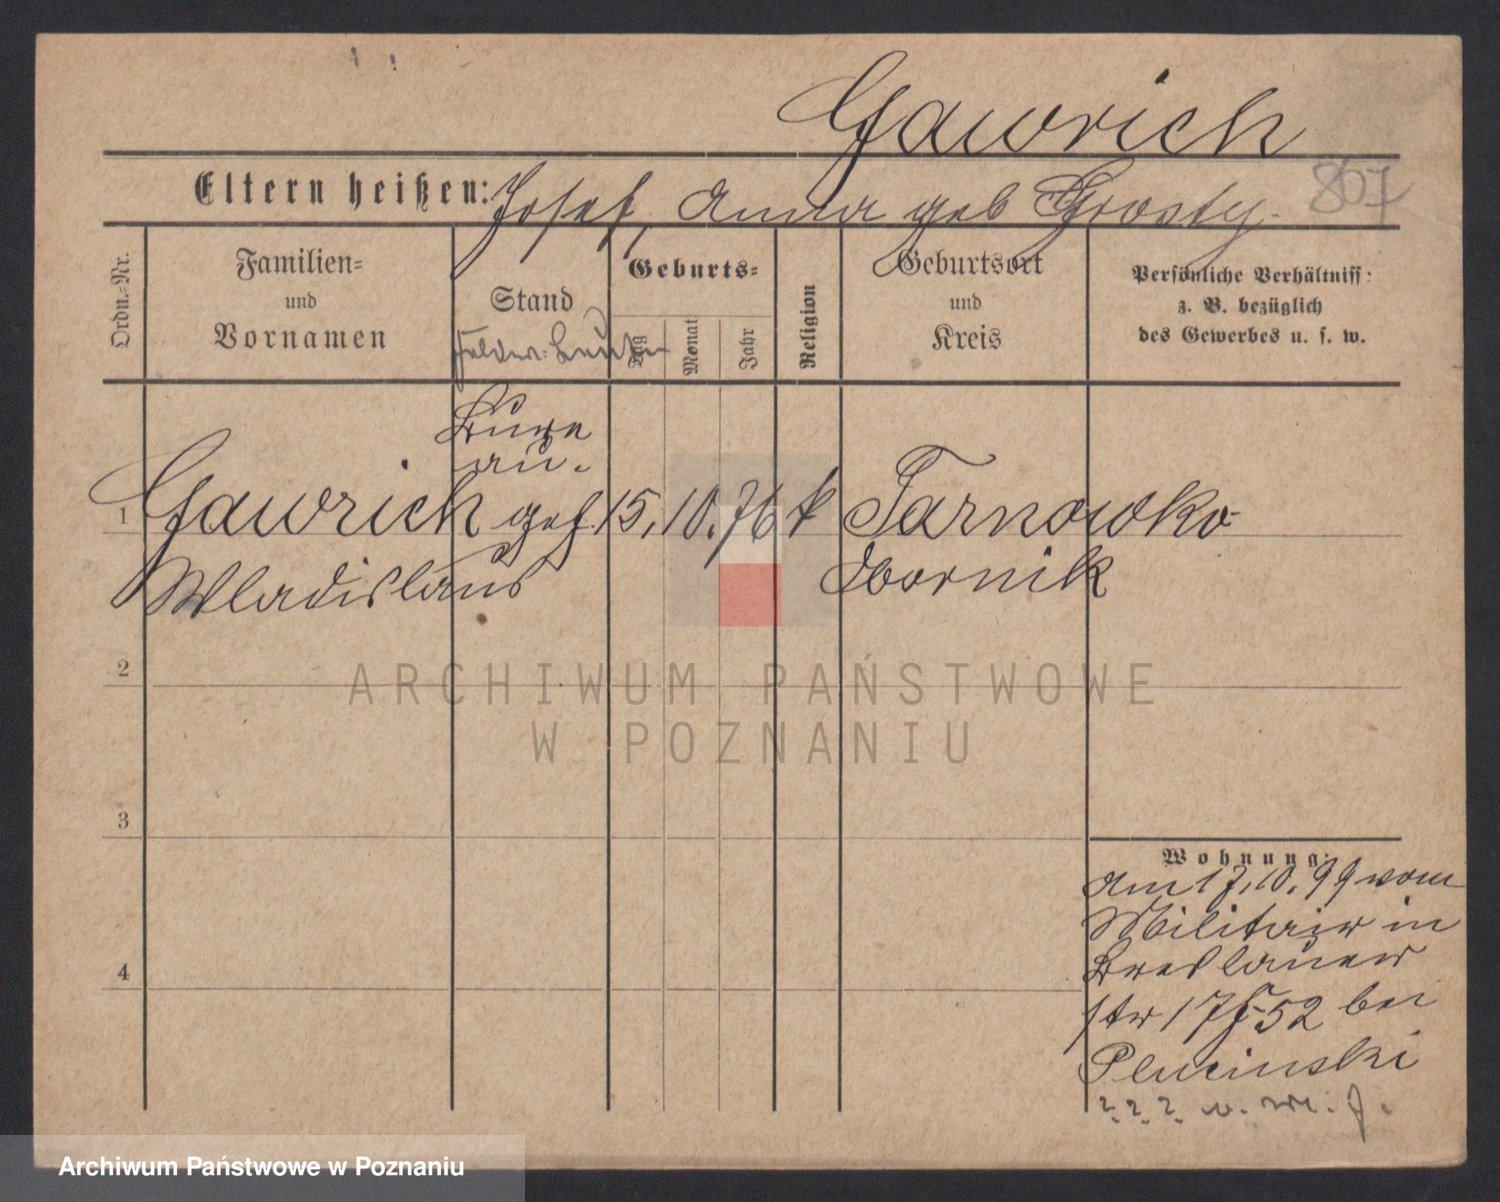 Gawrich
Eltern heißen: Josef, Anna geb Grosty.
807
Ordn.-Nr.
Familien=
und
Vornamen
Stand
Geburts=
Tag
Monat
Jahr
Religion
Geburtsort
und
Kreis
Persönliche Verhältniss:
z. B. bezüglich
des Gewerbes u. s. w.
Bure
au.
1 Gawrich geh 15. 10. 76 k Tarnowko
Wladislaus Obornik
2
3
4
Wohnung:
Am 17. 10. 99 vom
Militair in
Breslauer
str 17 52 bei
Plucinski
? ? ? v.
ARCHIWUM PAŃSTWOWE
W POZNANIU
Archiwum Państwowe w Poznaniu